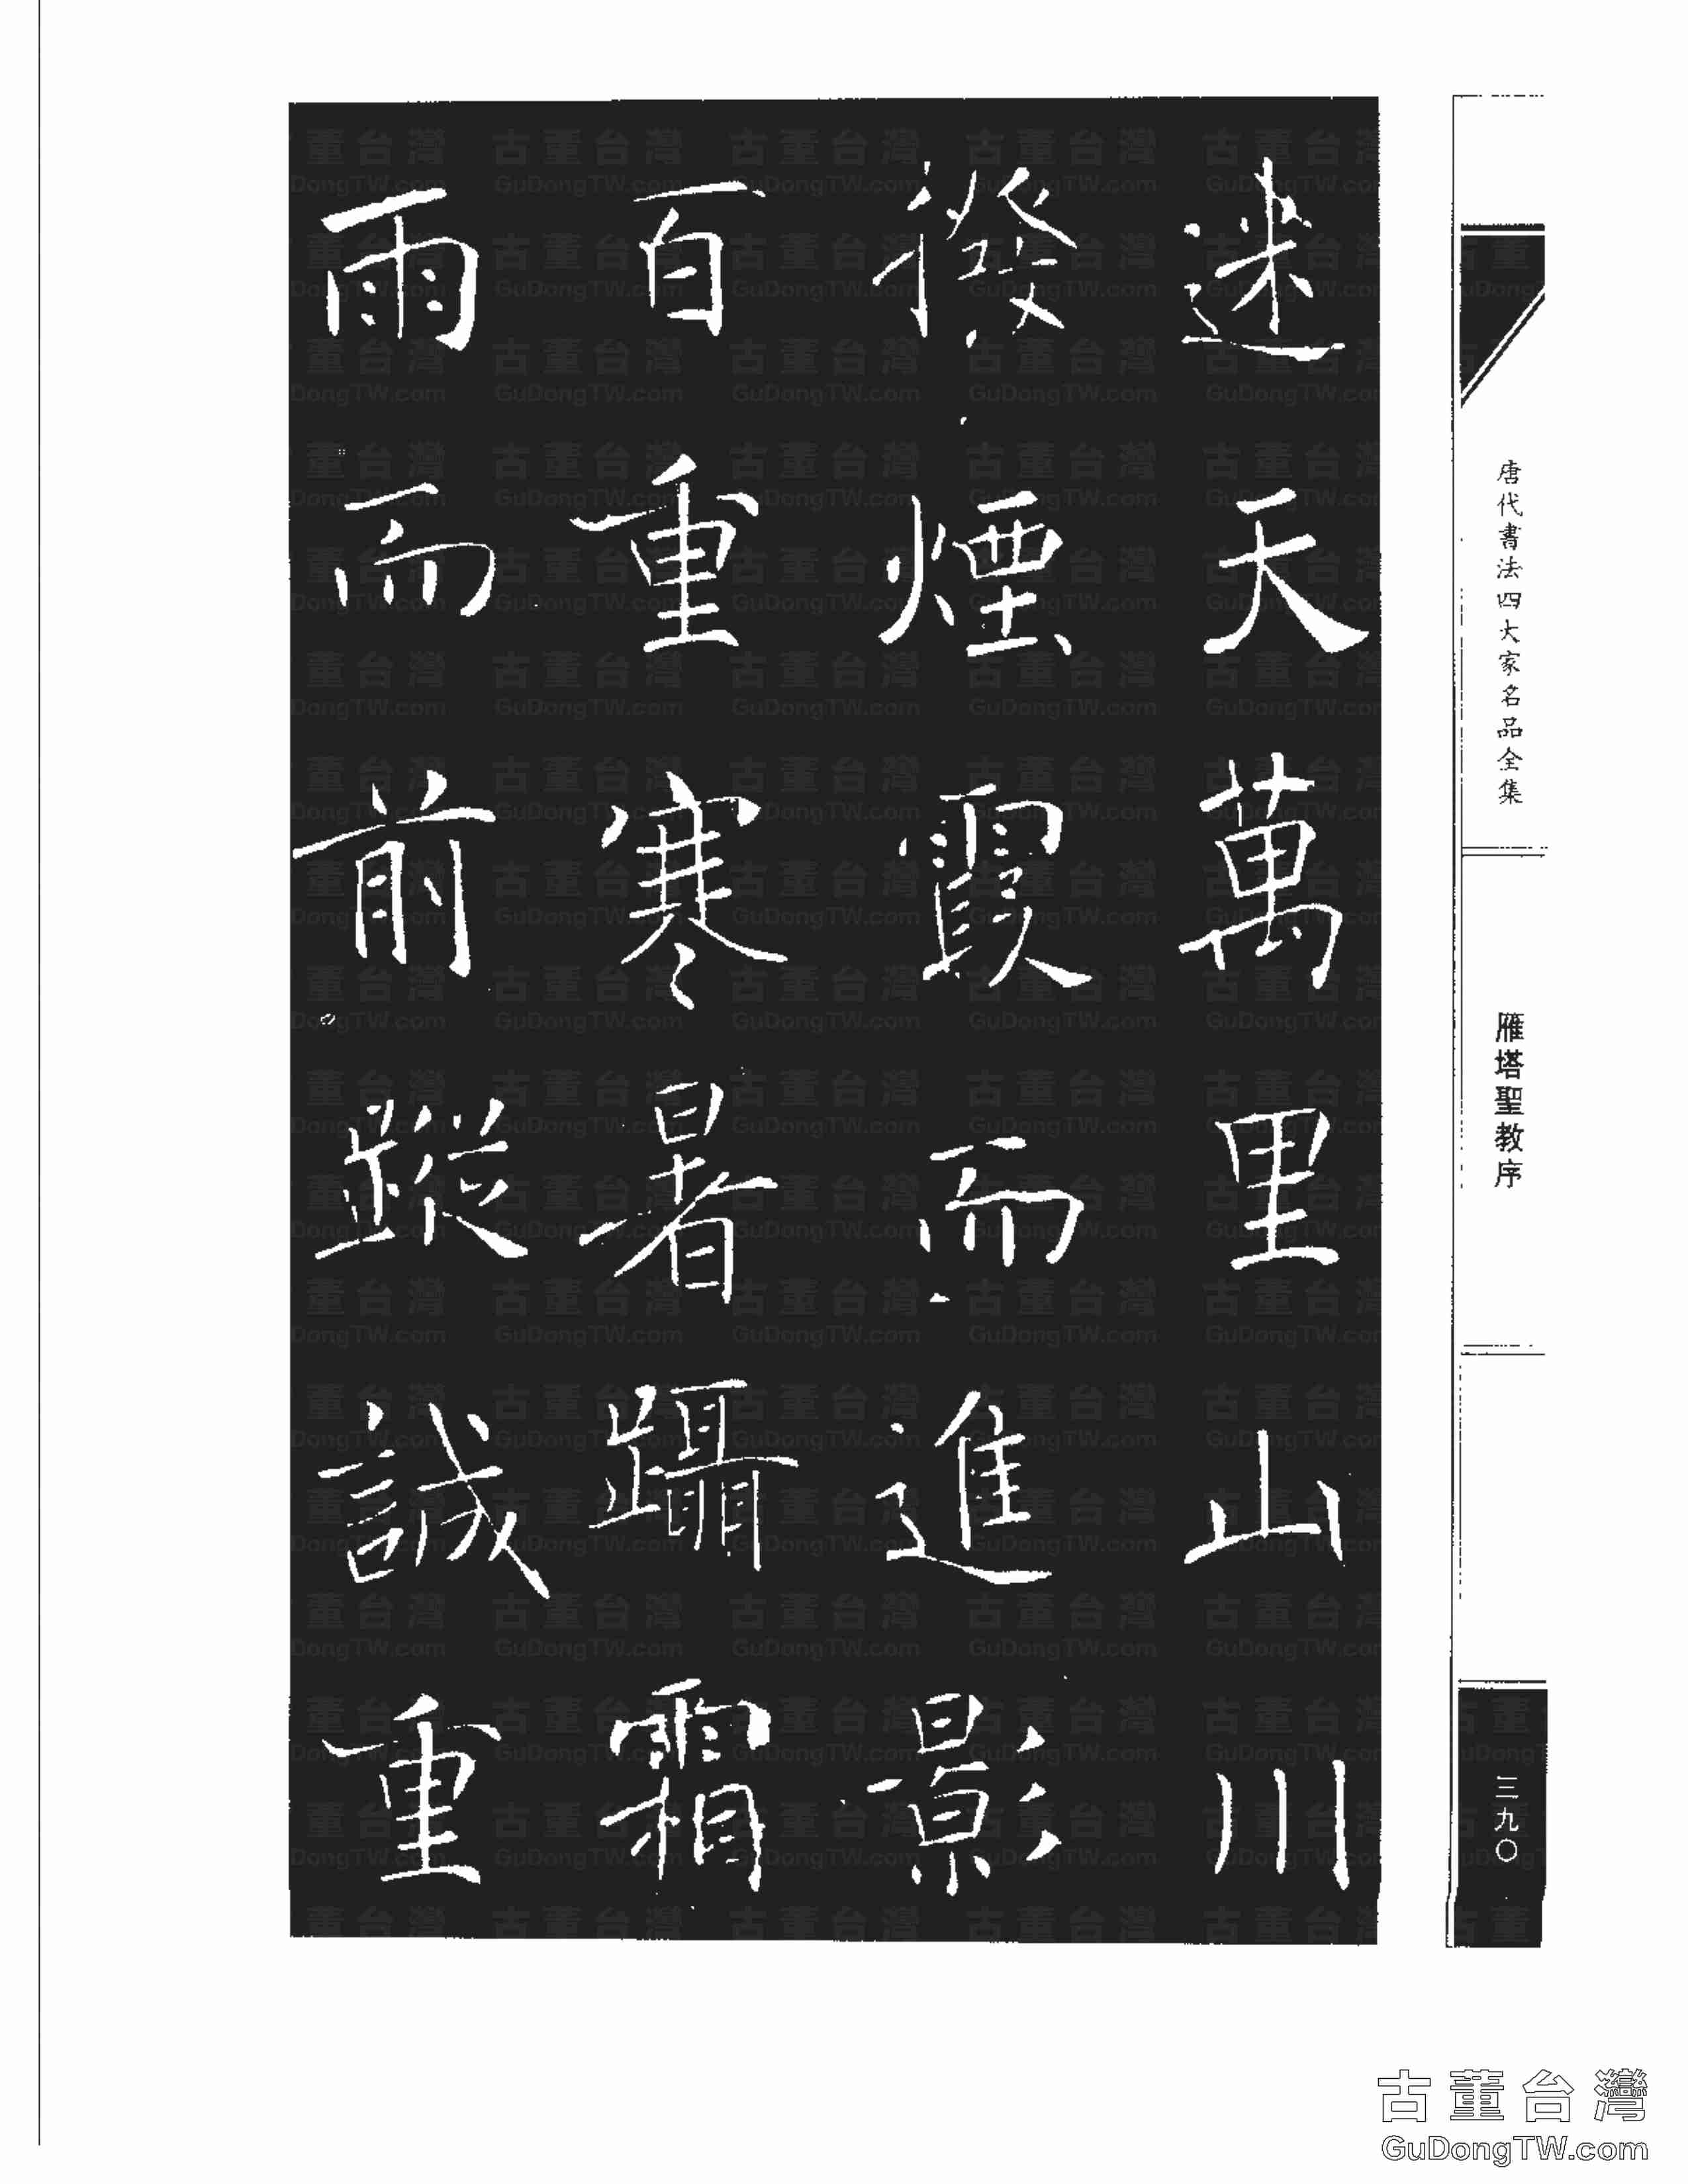 迷天萬里山川
撥煙霞而進影
百重寒暑躡霜
雨而前蹤誠重
唐代書法四大家名品全集
雁塔聖教序
三九〇
古董台灣
GuDongTW.com